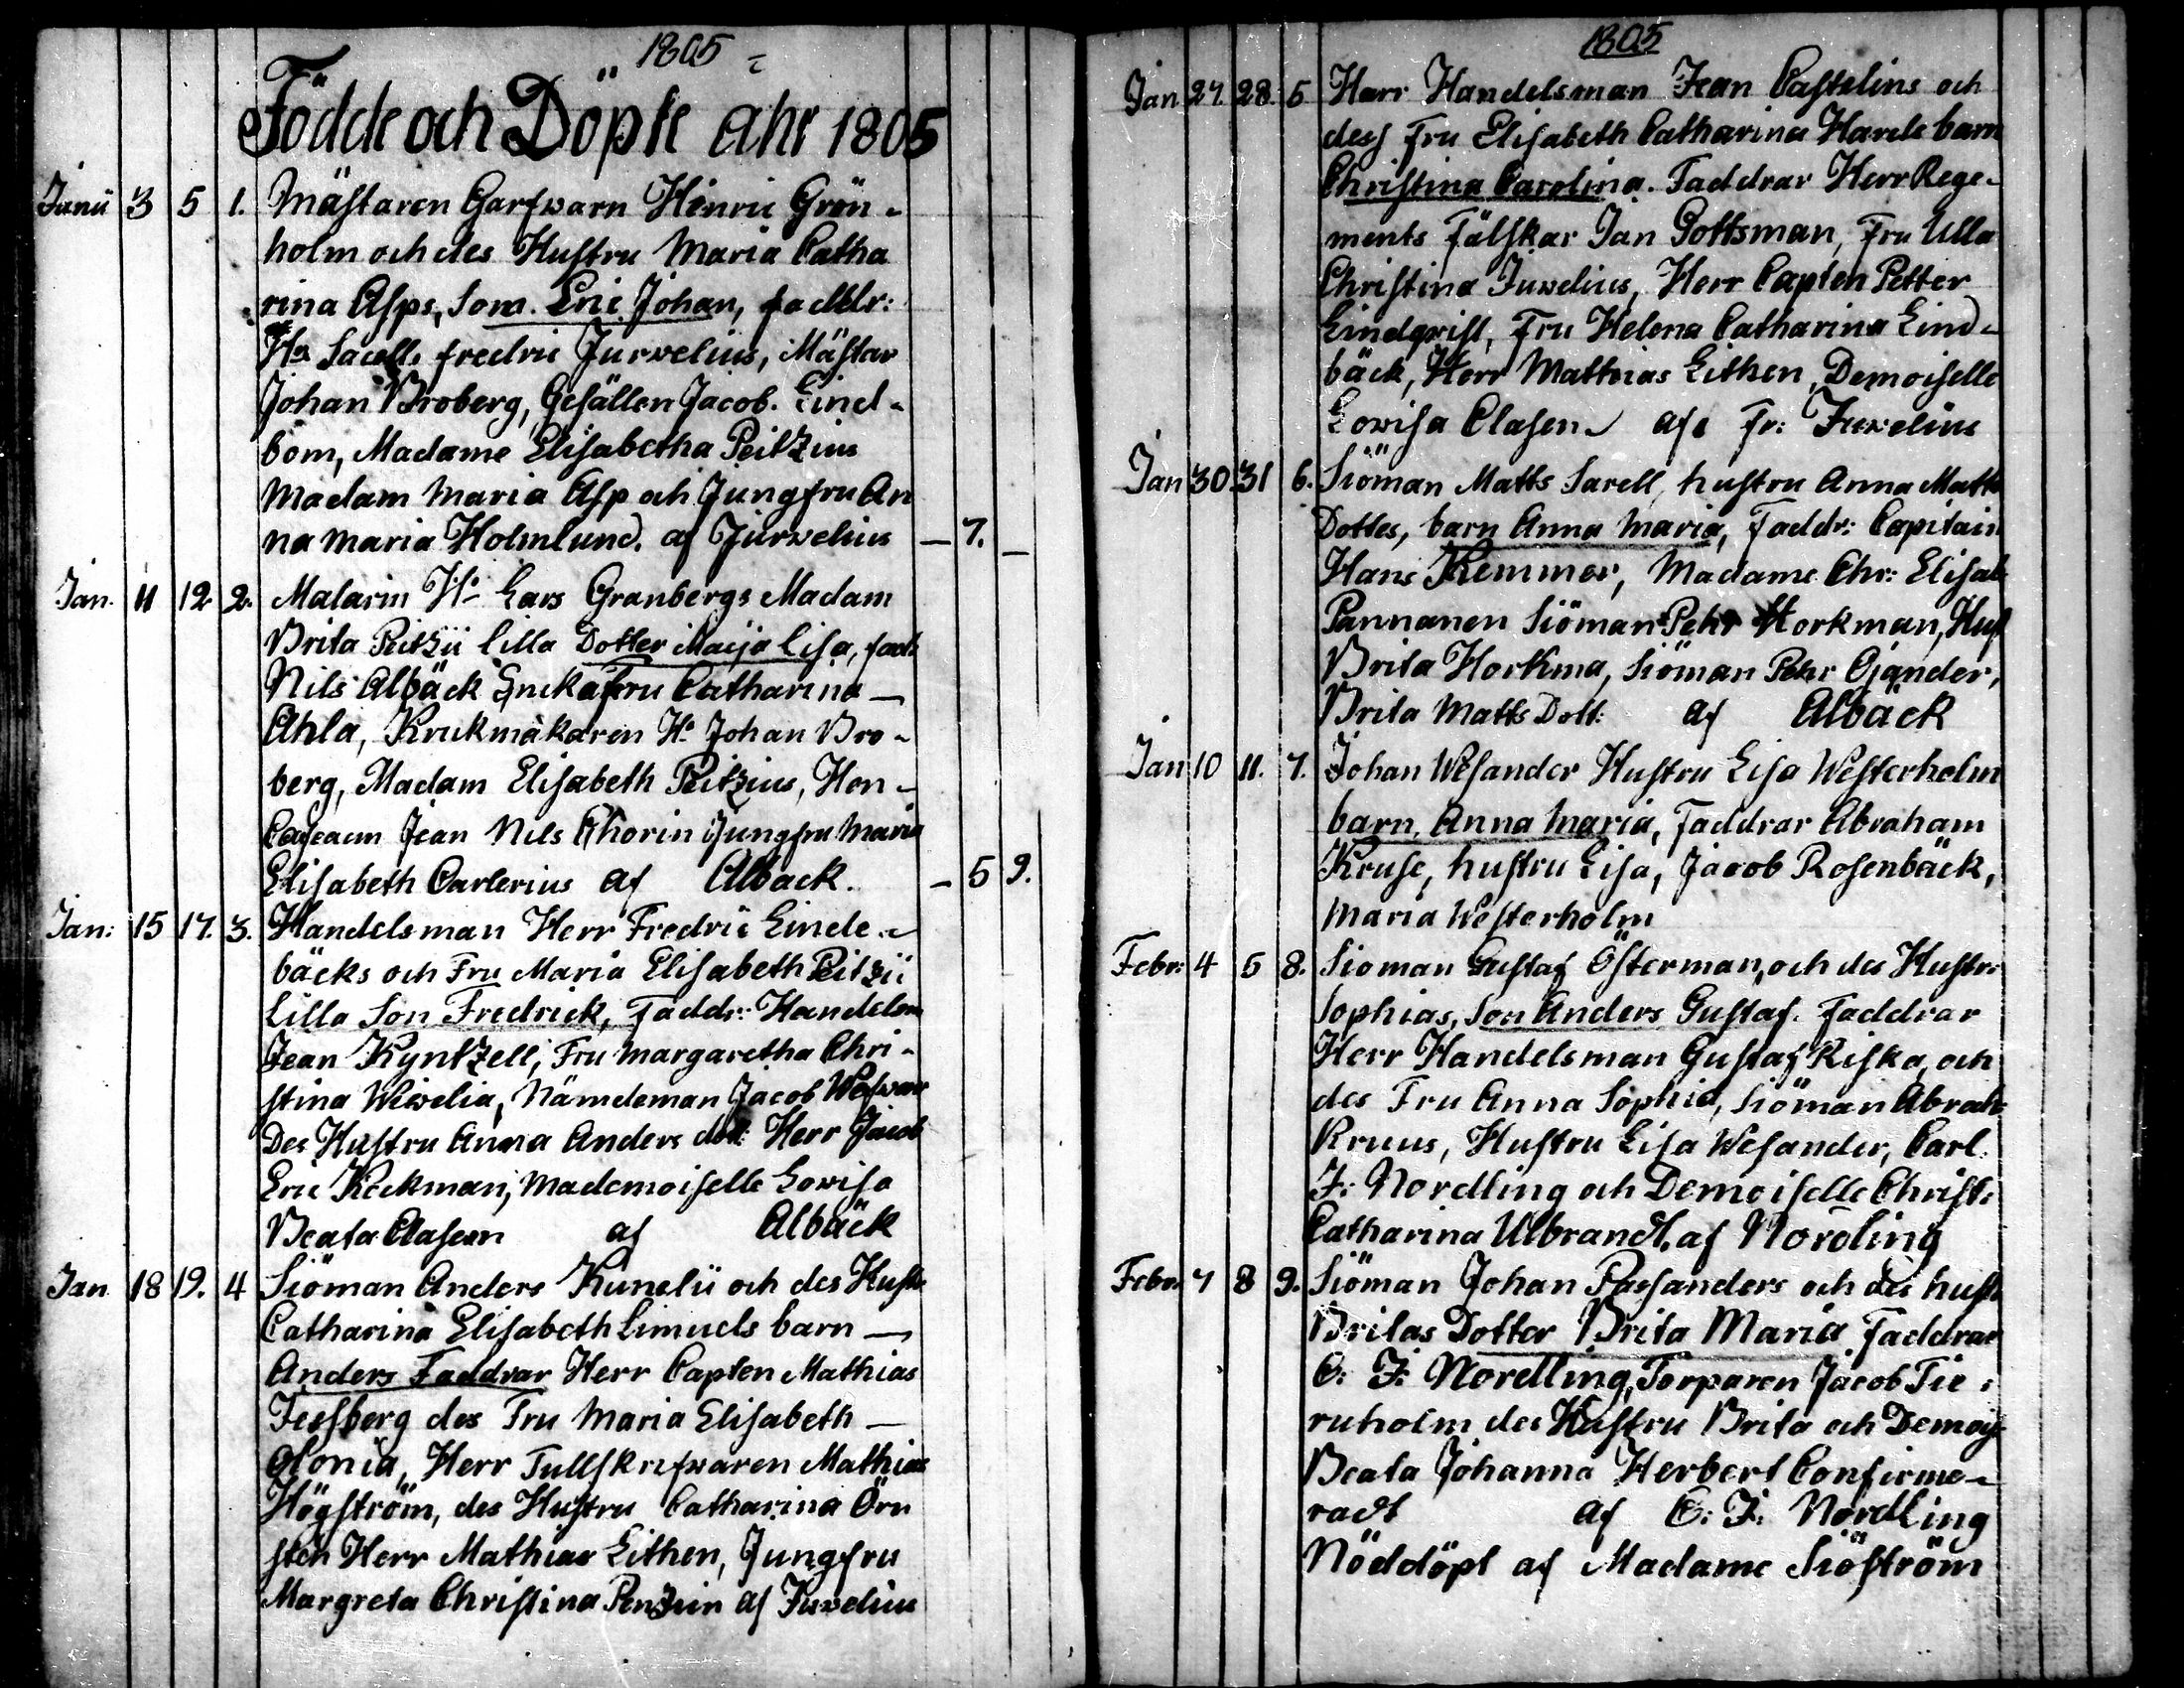 1805
Födde och Döpte ahr 1805
Janu 3 5 1. Mästaren Garfwarn Hinric Grön-
holm och des Hustru Maria Catha
rina Asps, Son. Eric Johan, faddr:
Hr Sacell. fredric Juwelius, Mästar
Johan Broberg, Gesällen Jacob. Lind-
bom, Madame Elisabetha Peitzius
Madam Maria Asp och Jungfru An
na Maria Holmlund. af Juwelius — 7. —
Jan. 11 12. 2. Malarin Hr Lars Granbergs Madam
Brita Peitzii lilla Dotter Maija Lisa, fadd
Nils Albäck Enkafru Catharina —
Ahla, Krukmakaren Hr Johan Bro-
berg, Madam Elisabeth Peitzius, Hen-
Jean Nils Thorin Jungfru Maria
Elisabeth Carlerius af Alback. — 5 9.
Jan: 15 17. 3. Handelsman Herr Fredric Linde-
bäcks och Fru Maria Elisabeth Peitzii
Lilla Son Fredrick, Faddr: Handelsm
Jean Kyntzell, Fru Margaretha Chri-
stina Wiwelia, Nämdeman Jacob
Des Hustru Anna Anders dott: Herr Jacob
Eric Keckman, Mademoiselle Lowisa
Beata Clasen af Albäck
Jan 18 19. 4 Siöman Anders Kunelii och des Hust
Catharina Elisabeth Limuels barn —
Anders Faddrar Herr Capten Mathias
Fessberg des Fru Maria Elisabeth —
Olonia, Herr Tullskrifwaren Mathias
Högström, des Hustru Catharina Örn
sten Herr Mathias Lithen, Jungfru
Margreta Christina af Juwelius
1805
Jan 27. 28. 5 Herr Handelsman Jean Castelins och
dess Fru Elisabeth Catharina Harels barn
Christina Carolina. Faddrar Herr Rege-
ments Fälskar Jan Gottsman, Fru Ulla
Christina Juwelius, Herr Capten Petter
Lindqvist, Fru Helena Catharina Lind-
bäck, Herr Matthias Lithen, Demoiselle
Lowisa Clasen af Fr: Juwelius
Jan 30. 31 6. Siöman Matts Sarell, hustru Anna Matts
Dottes, barn Anna Maria, Faddr: Capitain
Hans Kemmer, Madame Chr: Elisab
Pannanen Siöman Pehr Horkman, Hust
Brita Horkma, Siöman Pehr Ojander,
Brita Matts Dott: af Alback
Jan 10 11. 7. Johan Wesander Hustru Lisa Westerholm
barn, Anna Maria, Faddrar Abraham
Kruse, hustru Lisa, Jacob Rosenbäck,
Maria Westerholm
Febr: 4 5 8. Sioman Gustaf Österman, och des Hustr:
Sophias, Son Anders Gustaf. Faddrar
Herr Handelsman Gustaf Riska, och
des Fru Anna Sophia, Siöman Abrah
Kruus, Hustru Lisa Wesander, Carl.
F: Nordling och Demoiselle Christ:
Catharina Ulbrandt, af Nordling
Febr. 7 8 9. Siöman Johan Passanders och des hust
Britas Dotter Brita Maria Faddrar
C: F: Nordling, Torparen Jacob Tie:
ruholm des Hustru Brita och Demois
Beata Johanna Herbert Confirme-
radt af C: F: Nordling
Nöddöpt af Madame Siöström